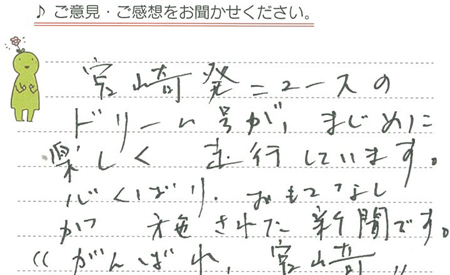 ♪ ご意見・ご感想をお聞かせください。
宮崎発ニュースの
ドリーム号が、まじめに
楽しく走行しています。
心くばり、おもてなし
がされた新聞です。
“がんばれ、宮崎”